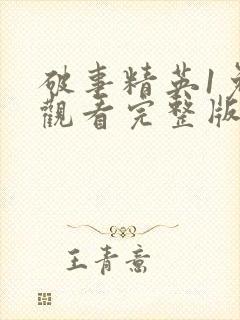 破事精英1免
觀看完整版
王青意